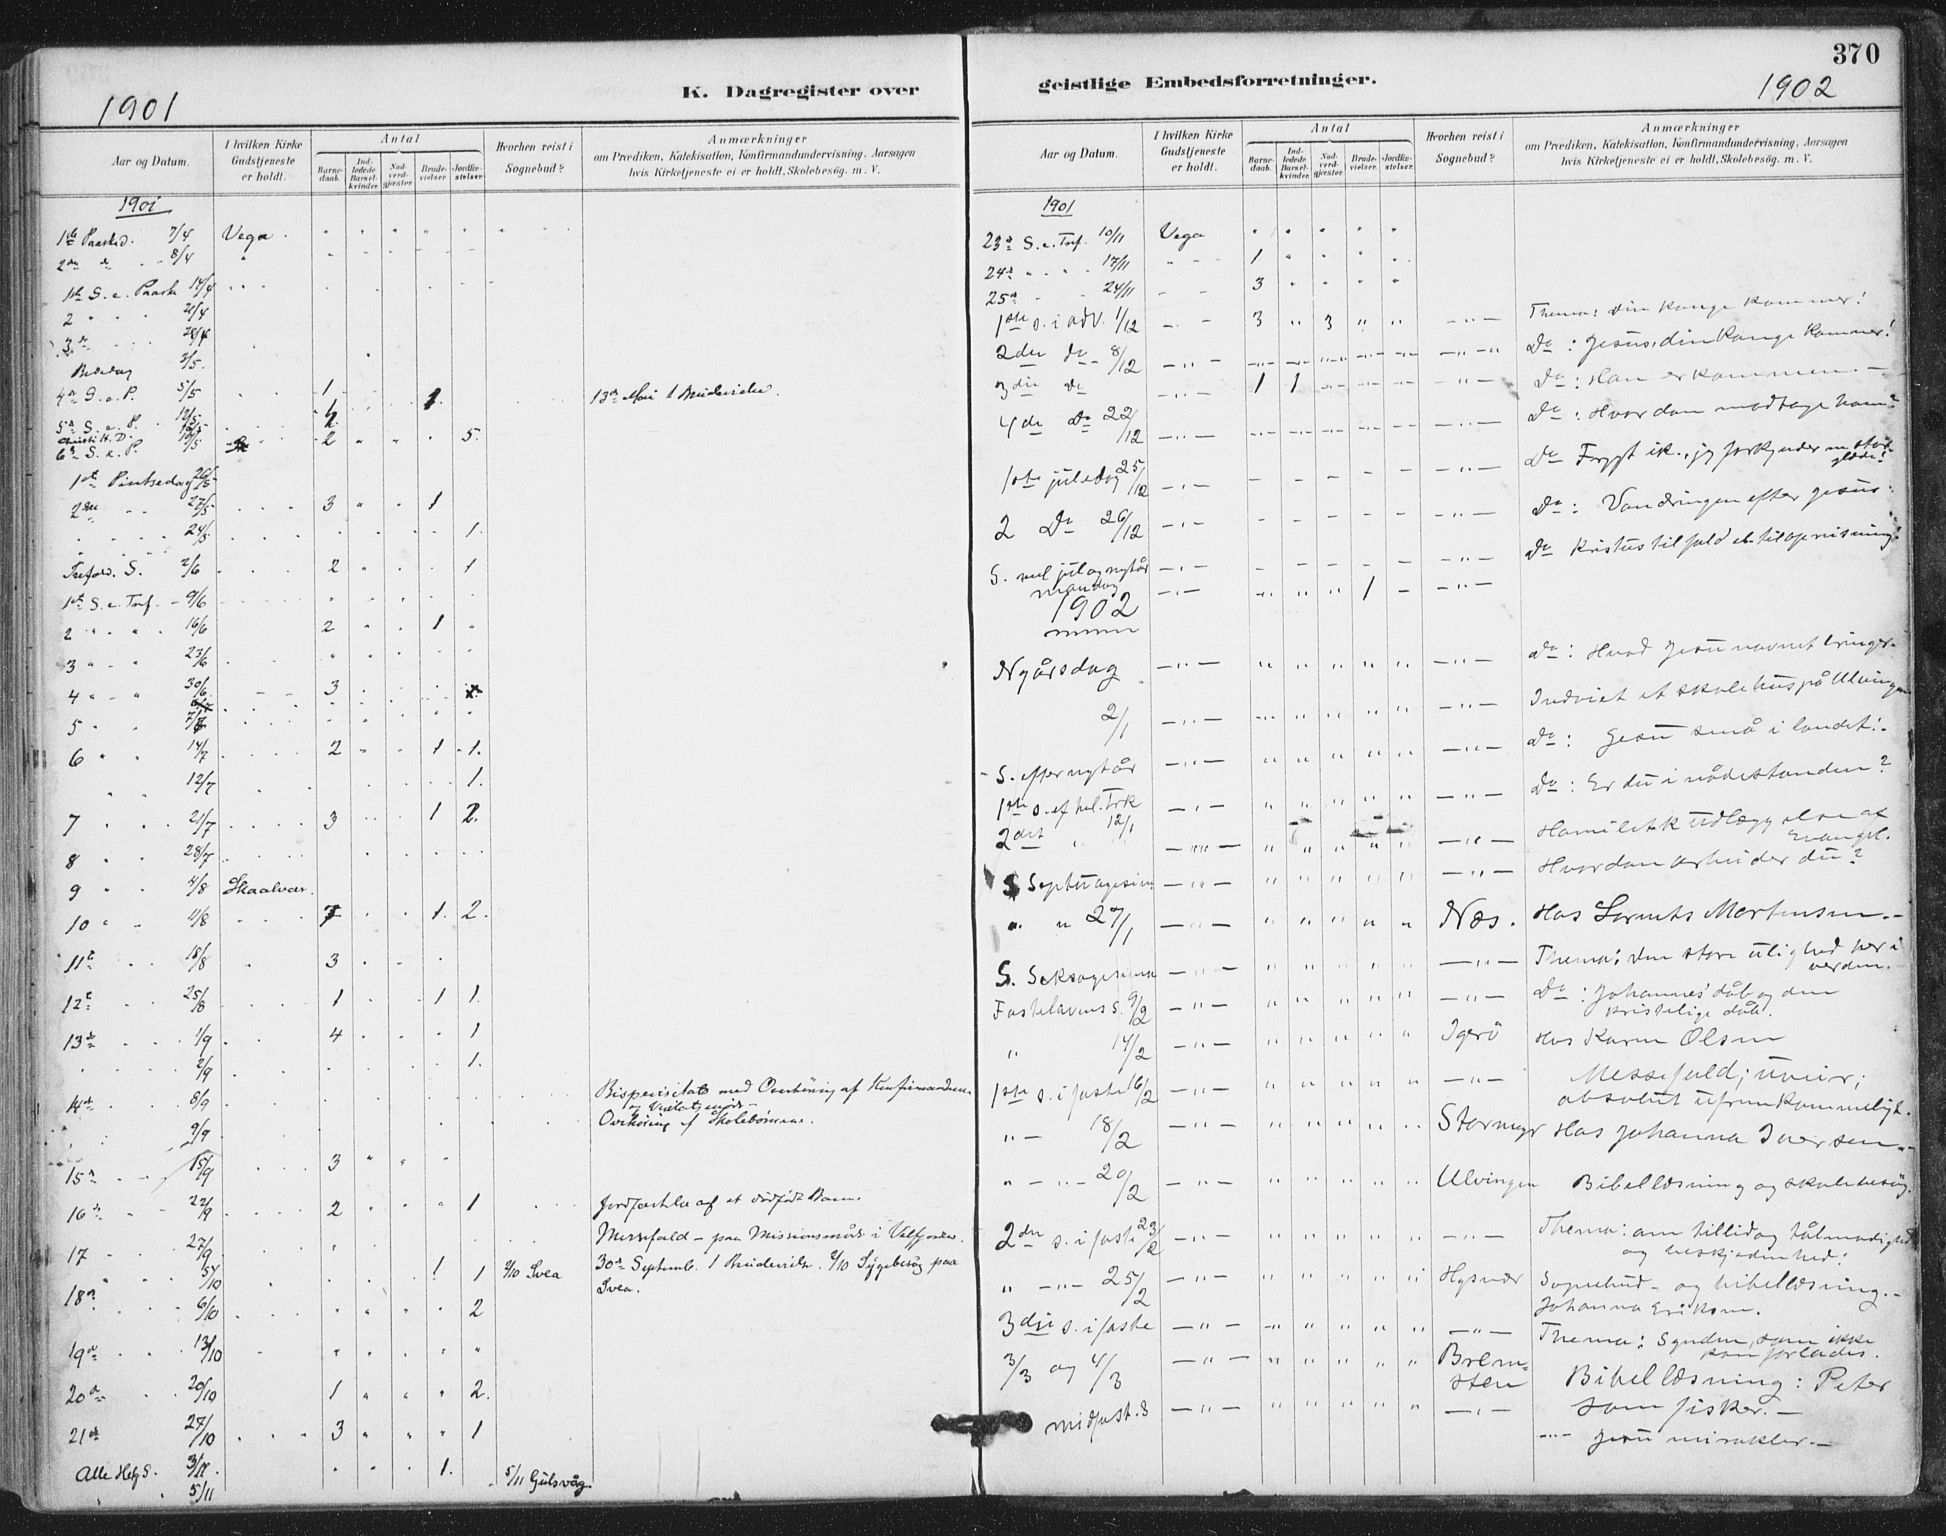 370
K. Dagregister over geistlige Embedsforretninger.
1901
1902
Aar og Datum.
I hvilken Kirke Gudstjeneste er holdt.
Antal
Barnedaab.
Indledede Barselkvinder.
Nadverdgjester
Brudevielser.
Jordfæstelser.
Hvorhen reist i Sognebud?
Anmærkninger
om Prædiken, Katekisation, Konfirmandundervisning, Aarsagen
hvis Kirketjeneste ei er holdt, Skolebesøg. m. V.
1901
1ste Paasked. 7/4 Vega
2den d 8/4
1ste S. e. Paaske 14/4
2 " " 21/4
3die 28/4
Bededag 3/5
4de S. e. P. 5/5 1 1 13de Mai 1 Brudevielse.
5te S. e. P. 12/5
Christi H. D.
6te S. e. P. 2 5.
1ste Pintsedag 26/5
2den " 27/5 3 1
24/5 1.
Trefold. S. 2/6 2 1
1ste S. e. Tref. 9/6
2 " " 16/6 2 1
3 " " 23/6
4 " " 30/6 3
5 " " 7/7
6 " " 14/7 2 1 1.
12/7 1.
7 " " 21/7 3 1 2.
8 " 28/7
9 " 4/8 Skaalvær.
10 " 11/8 7 1. 2.
11te 18/8 3
12te 25/8 1 1 1.
13de 1/9 4 1
2/9 1.
14de 8/9 Bispevisitats med Overhöring af Konfirmanderne
og Visitatsmöde
9/9 Overhöring af Skolebörnene.
15de 15/9 3
16de 22/9 2 1 Jordfæstelse af et dödfödt Barn.
17 27/9 Messefald - paa Missionsmöde i Velfjorden.
18de 1 1 4/10 Svea 30te Septemb. 1 Brudevielse. 4/10 Sygebesøg paa
Svea.
6/10 2
19de 13/10
20de 20/10 1 2.
21de 27/10 3 1
Alle Helg S. 3/11 1.
5/11 5/11 Gulsvåg.
Aar og Datum.
I hvilken Kirke Gudstjeneste er holdt.
Antal
Barnedaab.
Indledede Barselkvinder.
Nadverdgjester
Brudevielser.
Jordfæstelser.
Hvorhen reist i Sognebud?
Anmærkninger
om Prædiken, Katekisation, Konfirmandundervisning, Aarsagen
hvis Kirketjeneste ei er holdt, Skolebesøg. m. V.
1901
23de S. e. Tref. 10/11 Vega
24de " " 17/11 1
25de " " 24/11 3
1ste s. i adv. 1/12 3 " 3 " " Thema: Din konge kommer!
2den do 8/12 Do: Jesus, din konge kommer!
3die do 1 1 Do: Han er kommen. -
4de Do 22/12 Do: Hvordan modtage ham?
1ste juledag 25/12 Do Frygt ik., jeg forkynder en stor
glæde!
2 Do 26/12 Do: Vandringen efter Jesus.
S. mel jul og nytår Do Kristus til fald el. til oprisning!
mandag 1
1902
Nyårsdag Do: Hvad Jesu navnet bringer.
2/1 Indviet et skolehus på Ulvingen
S. efter nytår Do: Jesu små i landet!.
1ste s. ef hel. Trk 12/1 Do: Er du i nådestanden?
2det Homiletisk udlæggelse af
Evangel.
S Septuagesima Hvordan arbeider du?
" " 27/1 Næs. Hos Lornts Mortensen. -
S. Seksagesima Thema: Den store ulighed her i
verden. -
Fastelavens s. 9/2 Do: Johannes' dåb og den
kristelige dåb.
" 14/2 Igerö Hos Karen Olsen
1ste s. i faste 16/2 Messefald; uveir;
absolut ufremkommeligt.
" - 18/2 Stormyr Hos Johanna Iversen. -
" - " - 20/2 Ulvingen Bibellæsning og skolebesög.
2den s. i faste 23/2 Thema: om tillid og tålmodighed
og beskjedenhed!
" - " - 25/2 Hysvær Sognebud - og bibellæsning. -
Johanna Eriksen.
3die s. i faste Thema: Synden, som ikke
kan forlades.
3/3 og 4/3 Bremsten Bibellæsning: Peter
som fisker. -
midfast. s Jesu mirakler. -